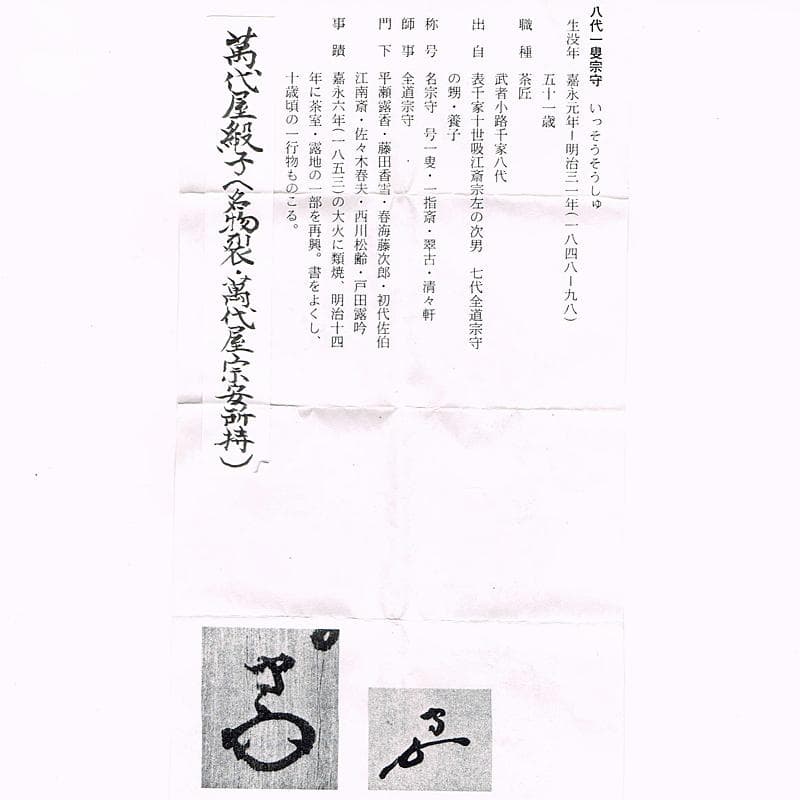 八代一叟宗守 いっそうそうしゅ
生没年 嘉永元年ー明治三一年(一八四八ー九八)
五十一歳
職種 茶匠
武者小路千家八代
出自 表千家十世吸江斎宗左の次男 七代全道宗守
の甥・養子
称号 名宗守 号一叟・一指斎・翠古・清々軒
師事 全道宗守
門下 平瀬露香・藤田香雪・春海藤次郎・初代佐伯
江南斎・佐々木春夫・西川松齢・戸田露吟
事蹟 嘉永六年(一八五三)の大火に類焼、明治十四
年に茶室・露地の一部を再興。書をよくし、
十歳頃の一行物ものこる。
萬代屋緞子(名物裂・萬代屋宗安所持)